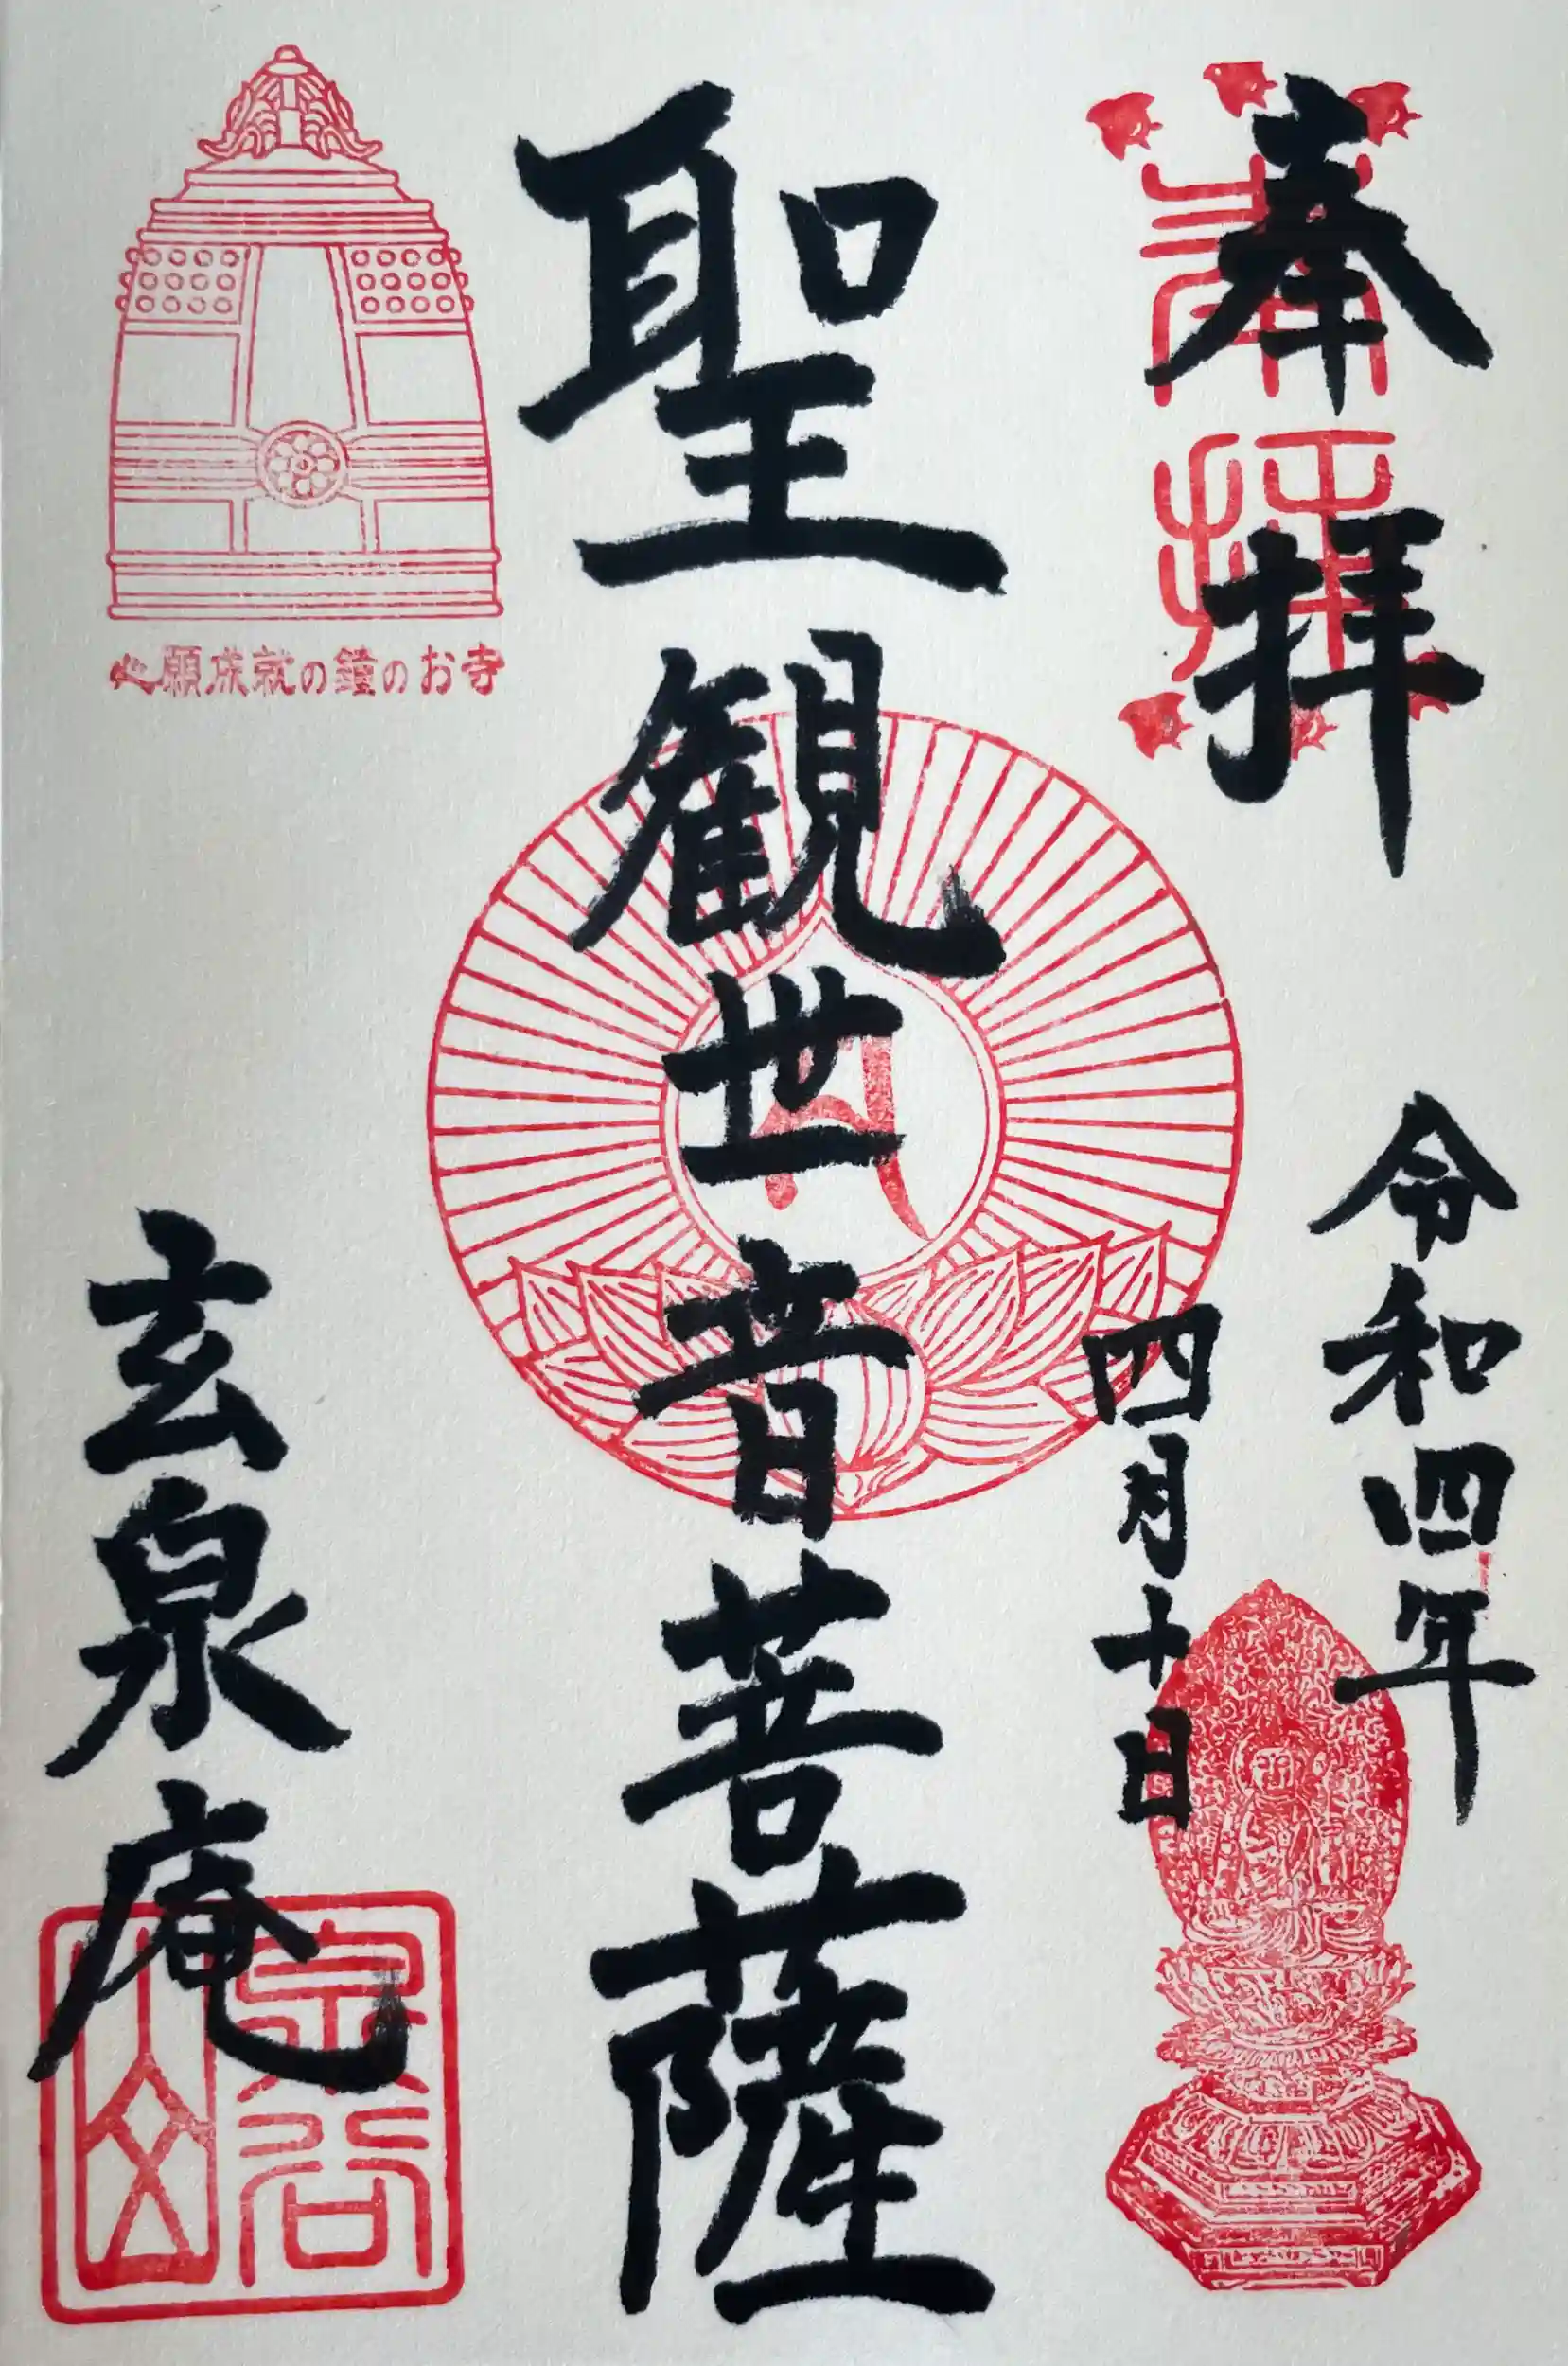 奉拝
奉拝
令和四年
四月十日
聖観世音菩薩
心願成就の鐘のお寺
玄泉庵